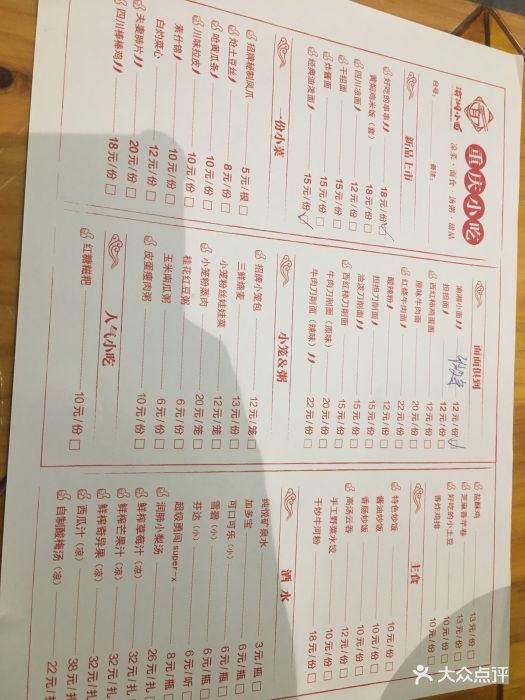 重庆小吃
凉菜·面食·汤粥·甜品
台号:
备注:
新品上市
好吃的串串 18元/份
黄焖鸡米饭（套） 18元/份
四川凉面 12元/份
12元/份
炸酱面 15元/份
经典油泼面 15元/份
一份小菜
招牌秘制凤爪 5元/根
炝土豆丝 8元/份
呛黄瓜条 10元/份
川味拉皮 10元/份
素什锦 10元/份
白灼菜心 12元/份
夫妻肺片 20元/份
四川棒棒鸡 18元/份
面面俱到
小面 12元/份
担担面 12元/份
西红柿鸡蛋面 12元/份
原味牛肉面 20元/份
红烧牛肉面 22元/份
酸辣粉 12元/份
担担刀削面 15元/份
油泼刀削面 15元/份
西红柿刀削面 15元/份
牛肉刀削面（原味） 20元/份
牛肉刀削面（辣味） 22元/份
小笼&粥
招牌小笼包 12元/笼
三鲜烧麦 13元/份
小笼粉丝娃娃菜 12元/笼
小笼粉蒸肉 20元/笼
桂花红豆粥 6元/份
玉米南瓜粥 6元/份
皮蛋瘦肉粥 10元/份
人气小吃
红糖糍粑 10元/份
盐酥鸡 13元/份
芝麻香芋卷 13元/份
好吃的小土豆 10元/份
香炸鸡排 10元/份
主食
特色炒饭 10元/份
酱油炒饭 10元/份
香肠炒饭 10元/份
高汤云吞 12元/份
手工野菜水饺 10元/份
干炒牛河粉 18元/份
酒水
纯悦矿泉水 3元/瓶
加多宝 6元/瓶
可口可乐（小） 6元/瓶
雪碧（小） 6元/瓶
芬达（小） 6元/听
超级勇闯super-x 8元/瓶
润肺小梨汤 26元/扎
鲜榨草莓汁（凉） 32元/扎
鲜榨芒果汁（凉） 32元/扎
鲜榨奇异果（凉） 32元/扎
西瓜汁（凉） 38元/扎
自制酸梅汤（凉） 22元/扎
大众点评